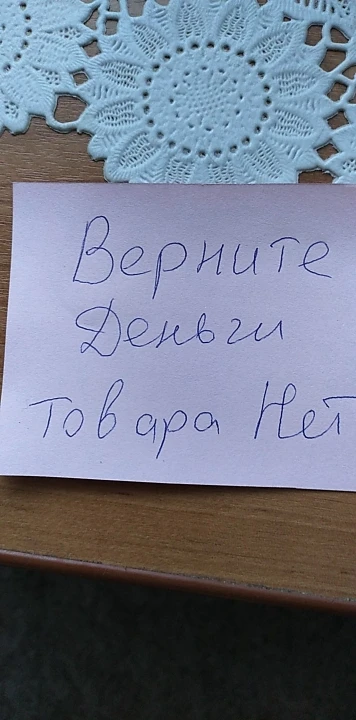 Верните
Деньги
товара Нет